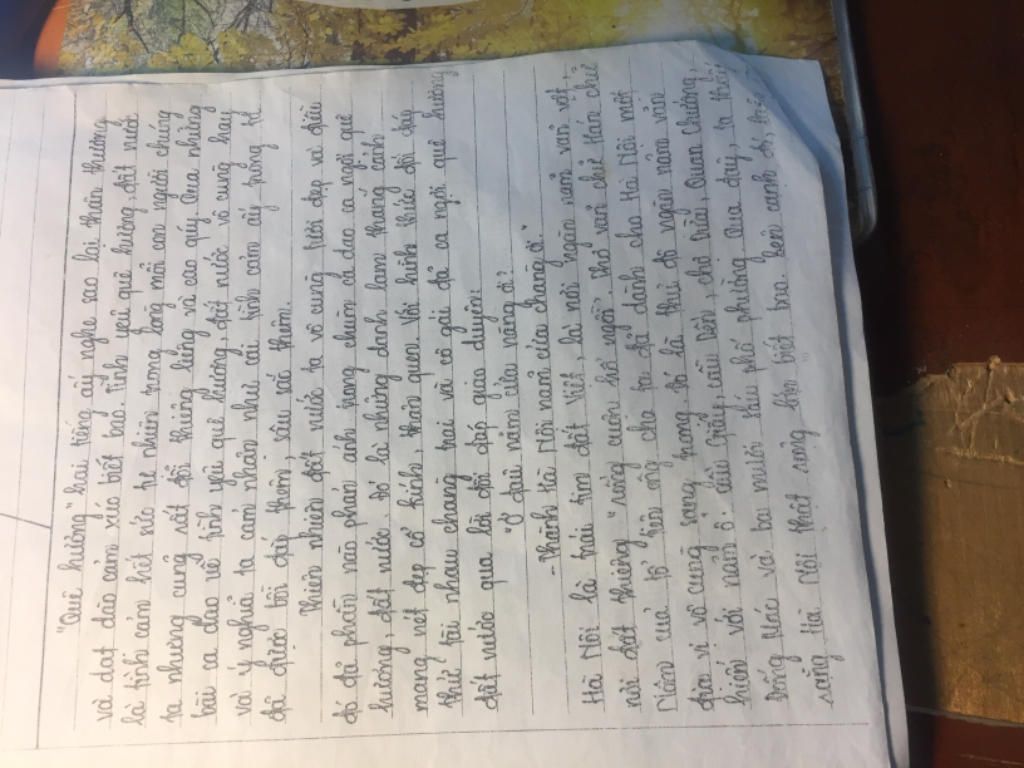 "Quê hương" hai tiếng ấy nghe sao lại thân thương
và dạt dào cảm xúc biết bao. Tình yêu quê hương, đất nước
là tình cảm hết sức tự nhiên trong lòng mỗi con người chúng
ta nhưng cũng rất đỗi thiêng liêng và cao quý. Qua những
bài ca dao về tình yêu quê hương, đất nước vô cùng hay
và ý nghĩa ta cảm nhận như cái tình cảm ấy trong ta
đã được bồi đắp thêm, sâu sắc thêm.
Thiên nhiên đất nước ta vô cùng tươi đẹp và điều
đó đã phần nào phản ánh trong chùm ca dao ca ngợi quê
hương, đất nước. Đó là những danh lam thắng cảnh
mang nét đẹp cổ kính, thân quen. Với hình thức đối đáp
thử tài nhau chàng trai và cô gái đã ca ngợi quê hương
đất nước qua lời đối đáp giao duyên:
"Ở đâu năm cửa nàng ơi?
- Thành Hà Nội năm cửa chàng ơi."
Hà Nội là trái tim đất Việt, là nơi ngàn năm văn vật,
nơi đất thiêng "rồng cuộn hổ ngồi". Thơ văn chữ Hán chữ
Nôm của tổ tiên ông cha ta đã dành cho Hà Nội một
địa vị vô cùng sang trọng đó là thủ đô ngàn năm văn
hiến với năm ô: Cầu Giấy, Cầu Dền, Chợ Dừa, Quan Chưởng,
Đống Mác và ba mươi sáu phố phường. Qua đây, ta thấy
rằng Hà Nội thật rộng lớn biết bao, bên cạnh đó,